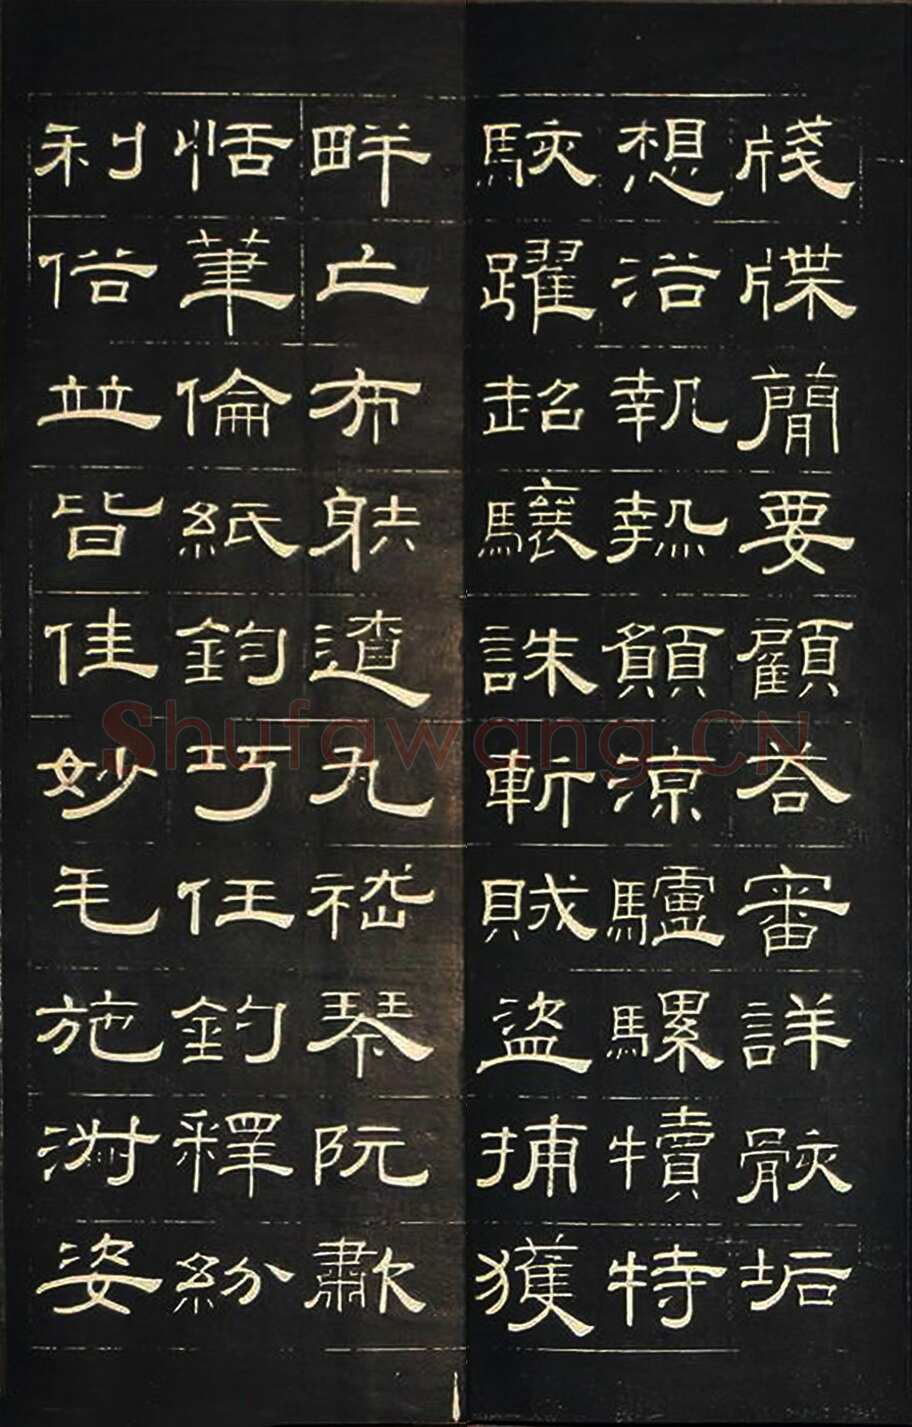 牋牒簡要顧荅審詳骸垢
想浴執熱願涼驢騾犢特
駭躍超驤誅斬賊盜捕獲
畔亡布射遼丸嵇琴阮歗
恬筆倫紙鈞巧任釣釋紛
利俗並皆佳妙毛施淑姿
Shufawang.CN